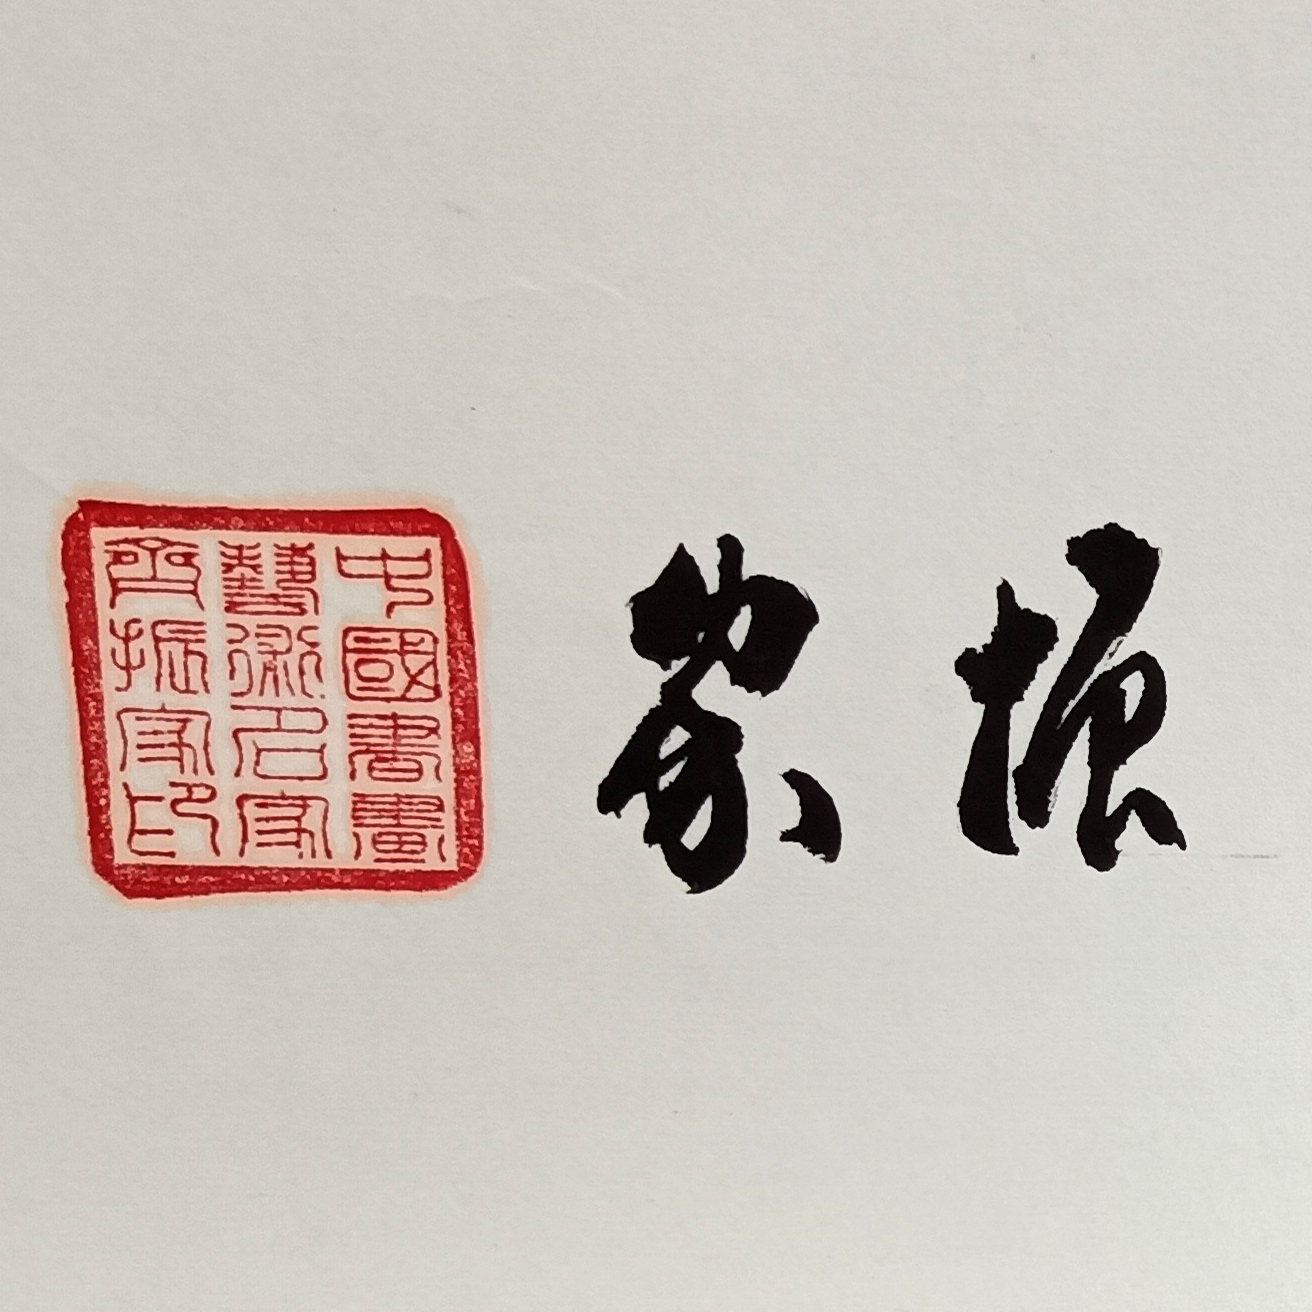 振家
中國書畫
藝術名家
齊振家印